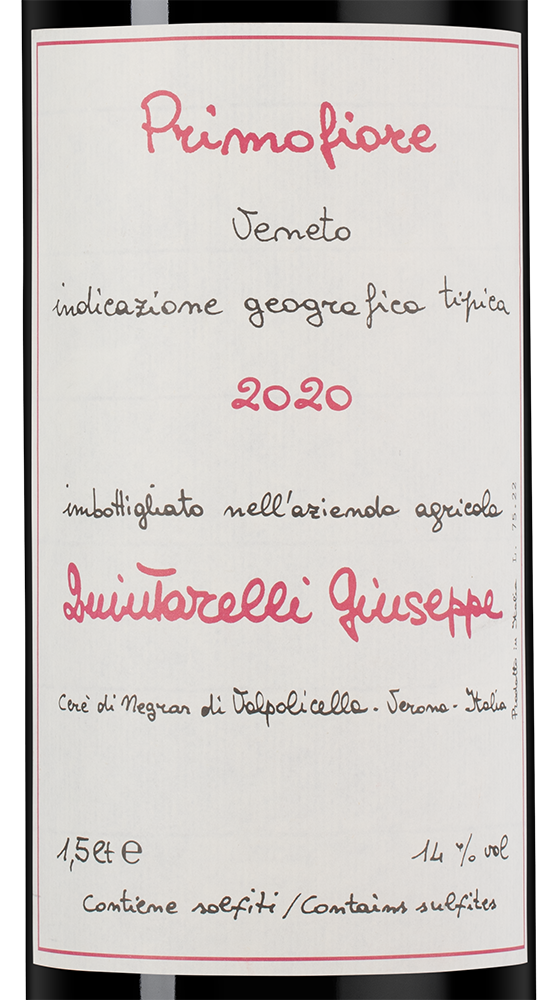 Primofiore
Veneto
indicazione geografica tipica
2020
imbottigliato nell'azienda agricola
Quintarelli Giuseppe
Cerè di Negrar di Valpolicella - Verona - Italia
Prodotto in Italia L. 75-22
1,5 lt e
14 % vol
Contiene solfiti / Contains sulfites